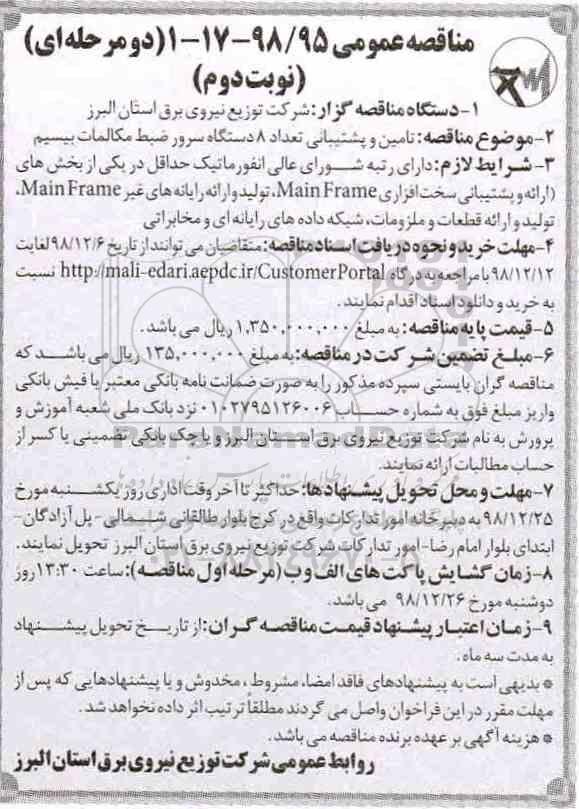 مناقصه عمومی ۹۸/۹۵-۱۷-۱ (دو مرحله ای)
(نوبت دوم)
۱- دستگاه مناقصه گزار: شرکت توزیع نیروی برق استان البرز
۲- موضوع مناقصه: تامین و پشتیبانی تعداد ۸ دستگاه سرور ضبط مکالمات بیسیم
۳- شرایط لازم: دارای رتبه شورای عالی انفورماتیک حداقل در یکی از بخش های
(ارائه و پشتیبانی سخت افزاری Main Frame، تولید وارائه رایانه های غیر Main Frame،
تولید و ارائه قطعات و ملزومات، شبکه داده های رایانه ای و مخابراتی
۴- مهلت خرید و نحوه دریافت اسناد مناقصه: متقاضیان می توانند از تاریخ ۹۸/۱۲/۶ لغایت
۹۸/۱۲/۱۲ با مراجعه به درگاه http://mali-edari.aepdc.ir/CustomerPortal نسبت
به خرید و دانلود اسناد اقدام نمایند.
۵- قیمت پایه مناقصه: به مبلغ ۱,۳۵۰,۰۰۰,۰۰۰ ریال می باشد.
۶- مبلغ تضمین شرکت در مناقصه: به مبلغ ۱۳۵,۰۰۰,۰۰۰ ریال می باشد که
مناقصه گران بایستی سپرده مذکور را به صورت ضمانت نامه بانکی معتبر یا فیش بانکی
واریز مبلغ فوق به شماره حساب ۰۱۰۲۷۹۵۱۲۶۰۰۶ نزد بانک ملی شعبه آموزش و
پرورش به نام شرکت توزیع نیروی برق استان البرز و یا چک بانکی تضمینی یا کسر از
حساب مطالبات ارائه نمایند.
۷- مهلت و محل تحویل پیشنهادها: حداکثر تا آخر وقت اداری روز یکشنبه مورخ
۹۸/۱۲/۲۵ به دبیرخانه امور تدارکات واقع در کرج بلوار طالقانی شمالی - پل آزادگان -
ابتدای بلوار امام رضا - امور تدارکات شرکت توزیع نیروی برق استان البرز تحویل نمایند.
۸- زمان گشایش پاکت های الف و ب (مرحله اول مناقصه): ساعت ۱۳:۳۰ روز
دوشنبه مورخ ۹۸/۱۲/۲۶ می باشد.
۹- زمان اعتبار پیشنهاد قیمت مناقصه گران: از تاریخ تحویل پیشنهاد
به مدت سه ماه.
* بدیهی است به پیشنهادهای فاقد امضا، مشروط، مخدوش و یا پیشنهادهایی که پس از
مهلت مقرر در این فراخوان واصل می گردند مطلقاً ترتیب اثر داده نخواهد شد.
* هزینه آگهی بر عهده برنده مناقصه می باشد.
روابط عمومی شرکت توزیع نیروی برق استان البرز